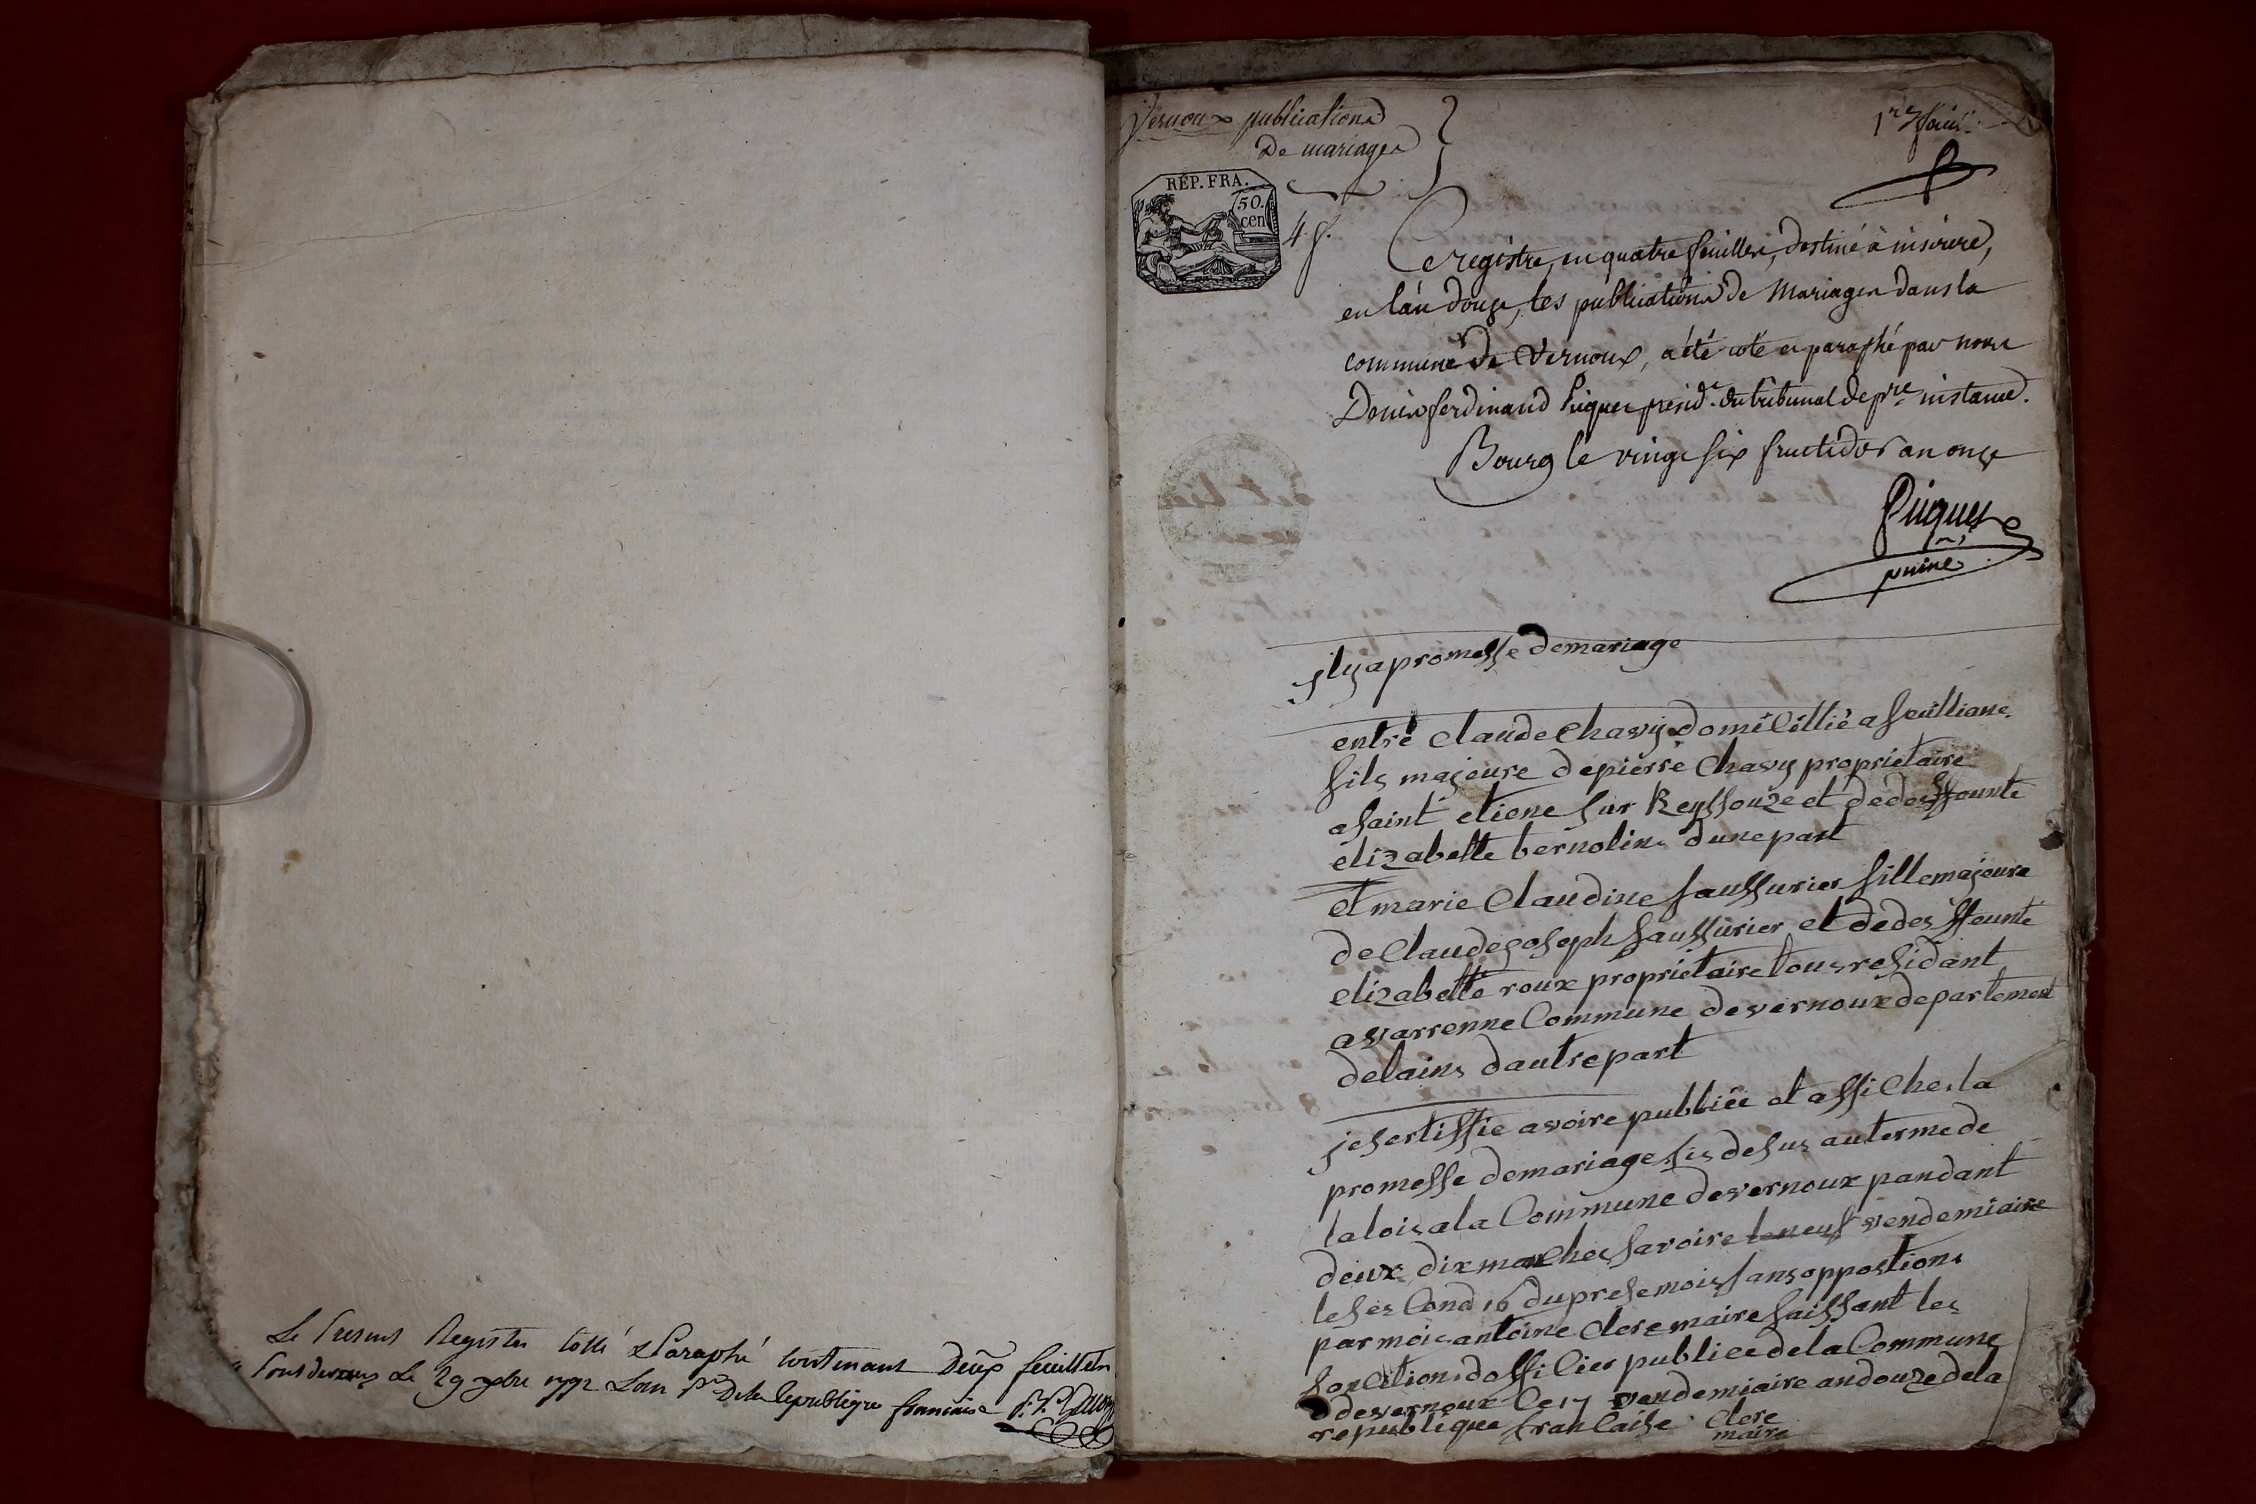 Le present Registre cotté & Paraphé contenant Deux feuillets
Pont devaux Le 29 xbre 1792 L'an 1er De la republique francaise
Vernoux publications
De mariages
1re feuil.
RÉP. FRA.
50.
cen
4 f.
Ce registre, en quatre feuilles, destiné à inscrire,
en l'an douze, les publications de Mariages dans la
commune de Vernoux, a été coté et paraphé par nous
Louis ferdinand Piquet présid.t du tribunal de pre instance.
Bourg le vingt six fructidor an onze
Piquet
puiné
jl y a promesse de mariage
entre Claude Chavy domicillié a feullians
fils majeure de pierre Chavy proprietaire
a saint etiene sur Reyssouze et de deffounte
elizabette bernolin dune part
et marie Claudine saussurier fille majeure
de Claude joseph saussurier et de deffounte
elizabette roux proprietaire tous residant
a varrenne Commune de vernoux departement
delains dautre part
je sertiffie avoire publiée et affiches la
promesse de mariage sis desus au terme de
la lois a la Commune de vernoux pandant
deux dixmanches savoire le neuf vendemiaire
le sesCond 16 du prese mois sans oppostions
par mois antoine Clere maire faissant les
fonCtions doffiCier publice de la Commune
de vernoux Ce 17 vendemiaire an douze de la
republique franCaise Clere
maire